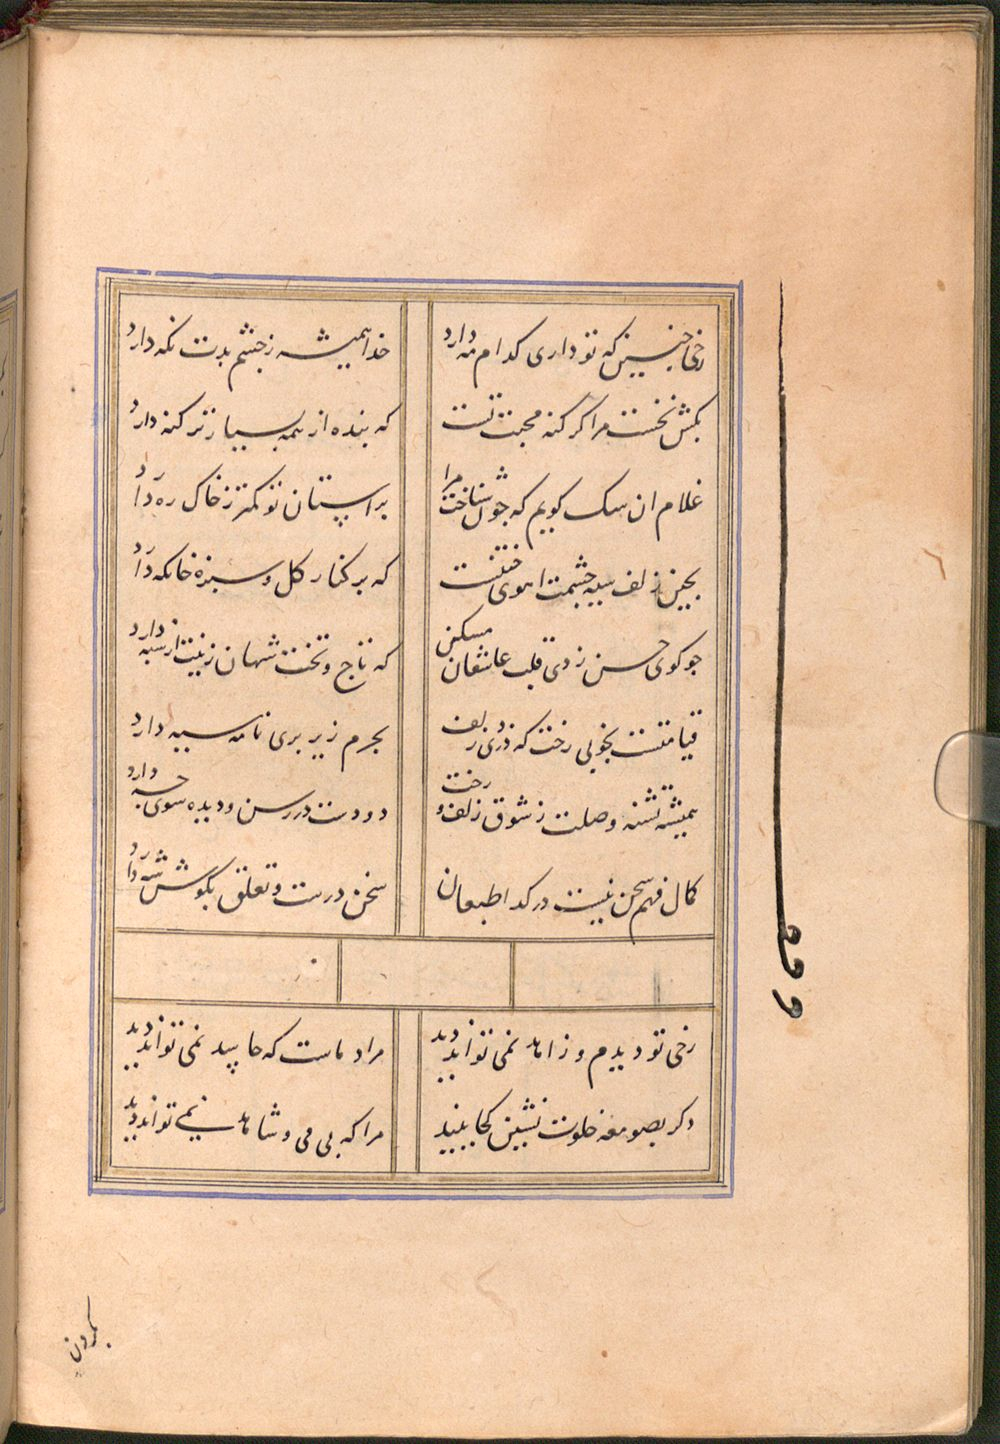 رخی چنین که تو داری کدام مه دارد
خدا همیشه زچشم بدت نکه دارد
بکش نخست مرا کر کنه محبت تست
که بنده از همه بسیارتر کنه دارد
غلام ان سک کویم که جو شناخت مرا
براستان تو کمتر زخاک ره دارد
بچین زلف سیه چشمت اهوی ختنست
که بر کنار کل و سبزه خانکه دارد
جو کوی حسن زدی قلب عاشقان مسکن
که تاج و تخت شهان زینت از سپه دارد
قیامتست بخوبی رخت که دزدی زلف
بجرم زیر بری نامه سیه دارد
همیشه تشنه وصلت زشوق زلف و رخت
دو دست در رسن و دیده سوی چه دارد
کمال فهم سخن نیست در کدا طبعان
سخن درست و تعلق بکوش شه دارد
رخی تو دیدم و زاهد نمی تواند دید
مراد ماست که حاسد نمی تواند دید
دکر بصومعه خلوت نشین کجا بیند
مرا که بی می و شاهد نمی تواند دید